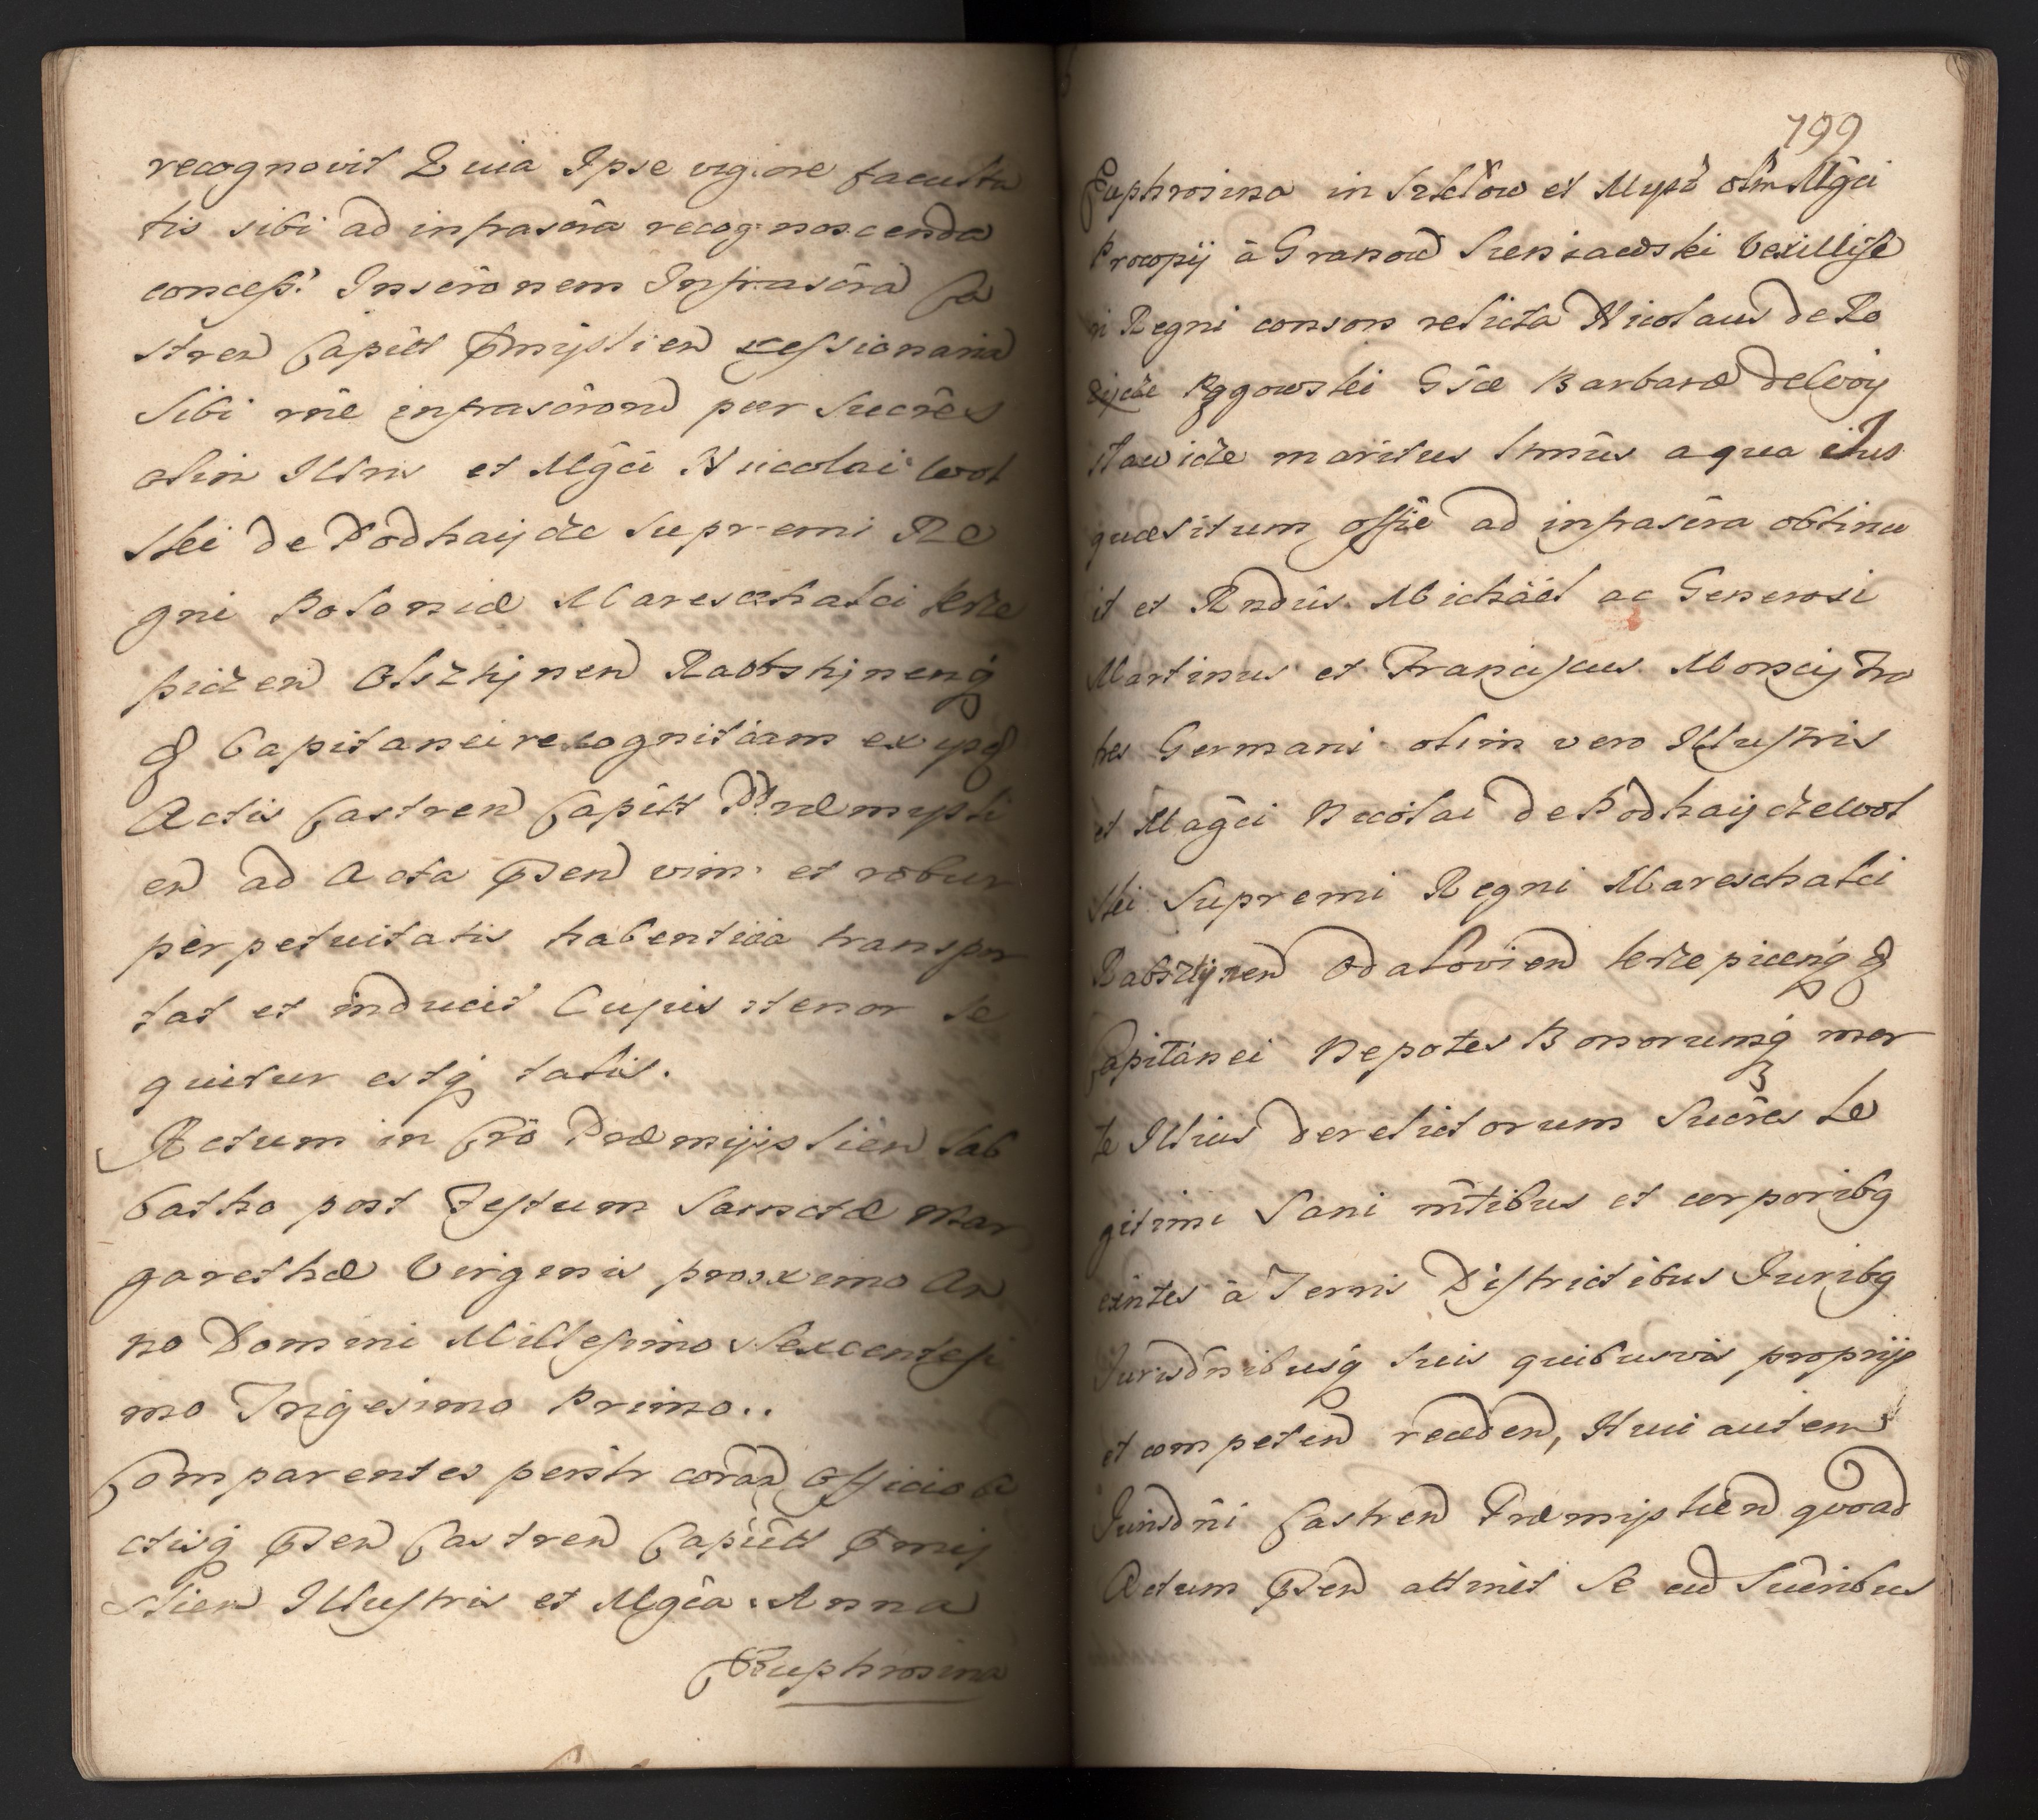 recognovit Quia Ipse vigore faculta
tis sibi ad infrascra recognoscenda
concess. Inscronem Infrascra Ca
stren Capitt Pmyslien cessionaria
Sibi rne infrascronu per Sucres
olim Illris et Mgci Nicolai Wol
ski de Podhayce Supremi Re
gni Poloniæ Mareschalci Krze
picen Olszynen Rabsthynenq
q Capitanei recognitam ex ipsq
Actis Castren Capitt Præmysli
en ad Acta Psen vim et robur
perpetuitatis habentia transpor
tat et inducit Cujus tenor se
quitur estq talis.
Actum in Cro Præmysslien Sab
batho post Festum Sanctæ Mar
garethæ Virginis proximo An
no Domini Millesimo Sexcentesi
mo Trigesimo Primo..
Comparentes persltr coram Officio A
ctisq Psen Castren Capitt Pmij
slien Illustris et Mgca Anna
Euphrosina
799
Euphrosina in et olim Mgci
Procopij à Granow Sieniawski Vexillife
ri Regni consors relicta Nicolaus de Ro
Gsæ Barbaræ de Woy
slawice maritus ltmus a qua ejus
quæsitum offie ad infrascra obtinu
it et Rndus Michäel ac Generosi
Martinus et Franciscus Morscy Fra
tres Germani olim vero Illustris
et Magci Nicolai de Podhayce Wol
ski Supremi Regni Mareschalci
Rabsztynen Odalovien Krzepicenq q
Capitanei Nepotes Bonorumq mor
te Illius derelictorum Sucres Le
gitimi Sani mtibus et corporibq
exntes à Terris Districtibus Juribq
Jurisdnibusq suis quibusvis proprijs
et competen receden, Huic autem
Jurisdni Castren Præmyslien quoad
Actum Psen attinet Se cu Sucribus